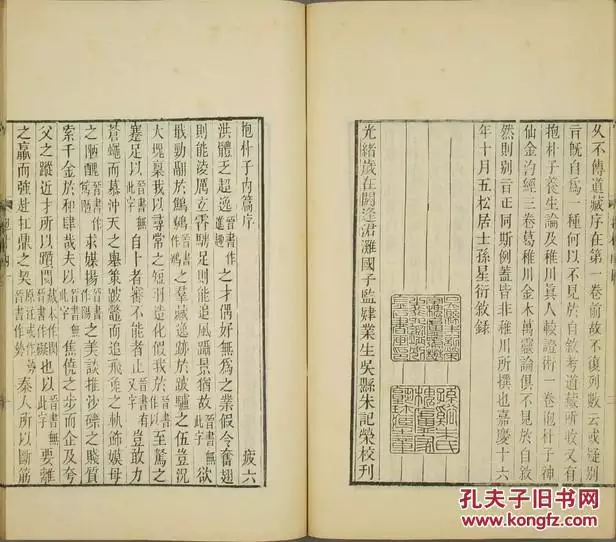 久不傳道藏序在第一卷前故不復數云或疑別
言旣自爲一種何以不見於自敘考道藏所收又有
抱朴子養生論及稚川眞人較證術一卷抱朴子神
仙金汋經三卷葛稚川金木萬靈論俱不見於自敘
然則別言正同斯例蓋皆非稚川所撰也嘉慶十六
年十月五松居士孫星衍敘錄
光緒歲在閼逢涒灘國子監肄業生吳縣朱記榮校刊
抱朴子內篇序 疲六
洪體乏超逸晉書作進趣之才偶好無爲之業假令奮翅
則能凌厲玄霄騁足則能追風躡景猶故晉書無此字欲
戢勁翮於鷦鷃晉書作鷃之羣藏逸跡於跛驢之伍豈況
大塊稟我以尋常之短羽造化假我於晉書作以至駑之
蹇足以晉書無此字自卜者審不能者止晉書有又字豈敢力
蒼蠅而慕沖天之舉策跛鱉而追飛兔之軌飾嫫母
之陋醜晉書作篤陋求媒揚晉書作陽之美談推沙礫之賤質
索千金於和肆哉夫以晉書無此字焦僥之步而企及夸
父之蹤近才所以躓閡藏本作閡晉書作礙也以晉書無此字要離
之羸而強赴扛鼎之契原注或作勢晉書作勢秦人所以斷筋
孔夫子旧书网